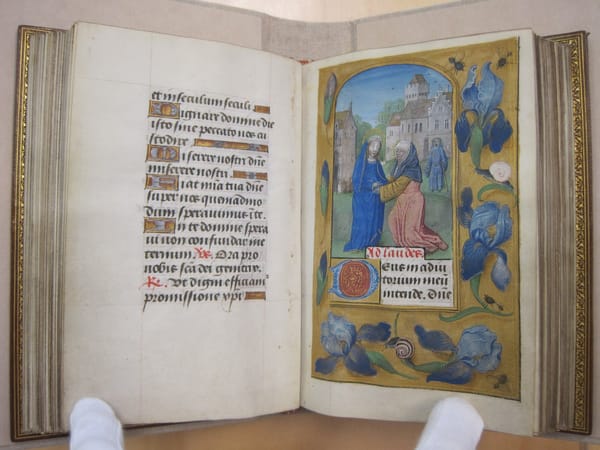 et in seculum seculi.
Dignare domine die
isto sine peccato nos cu
stodire.
Miserere nostri dñe
Fiat mīa tua dñe
super nos quemadmo
dum speravimus ī te.
In te domine spera
vi non confundar in e
ternum. Ora pro
nobis scā dei genitrix.
Ut digni efficiam
promissione xpi
Ad laudes.
Deus in adiu
torium meū
intende. Dñe